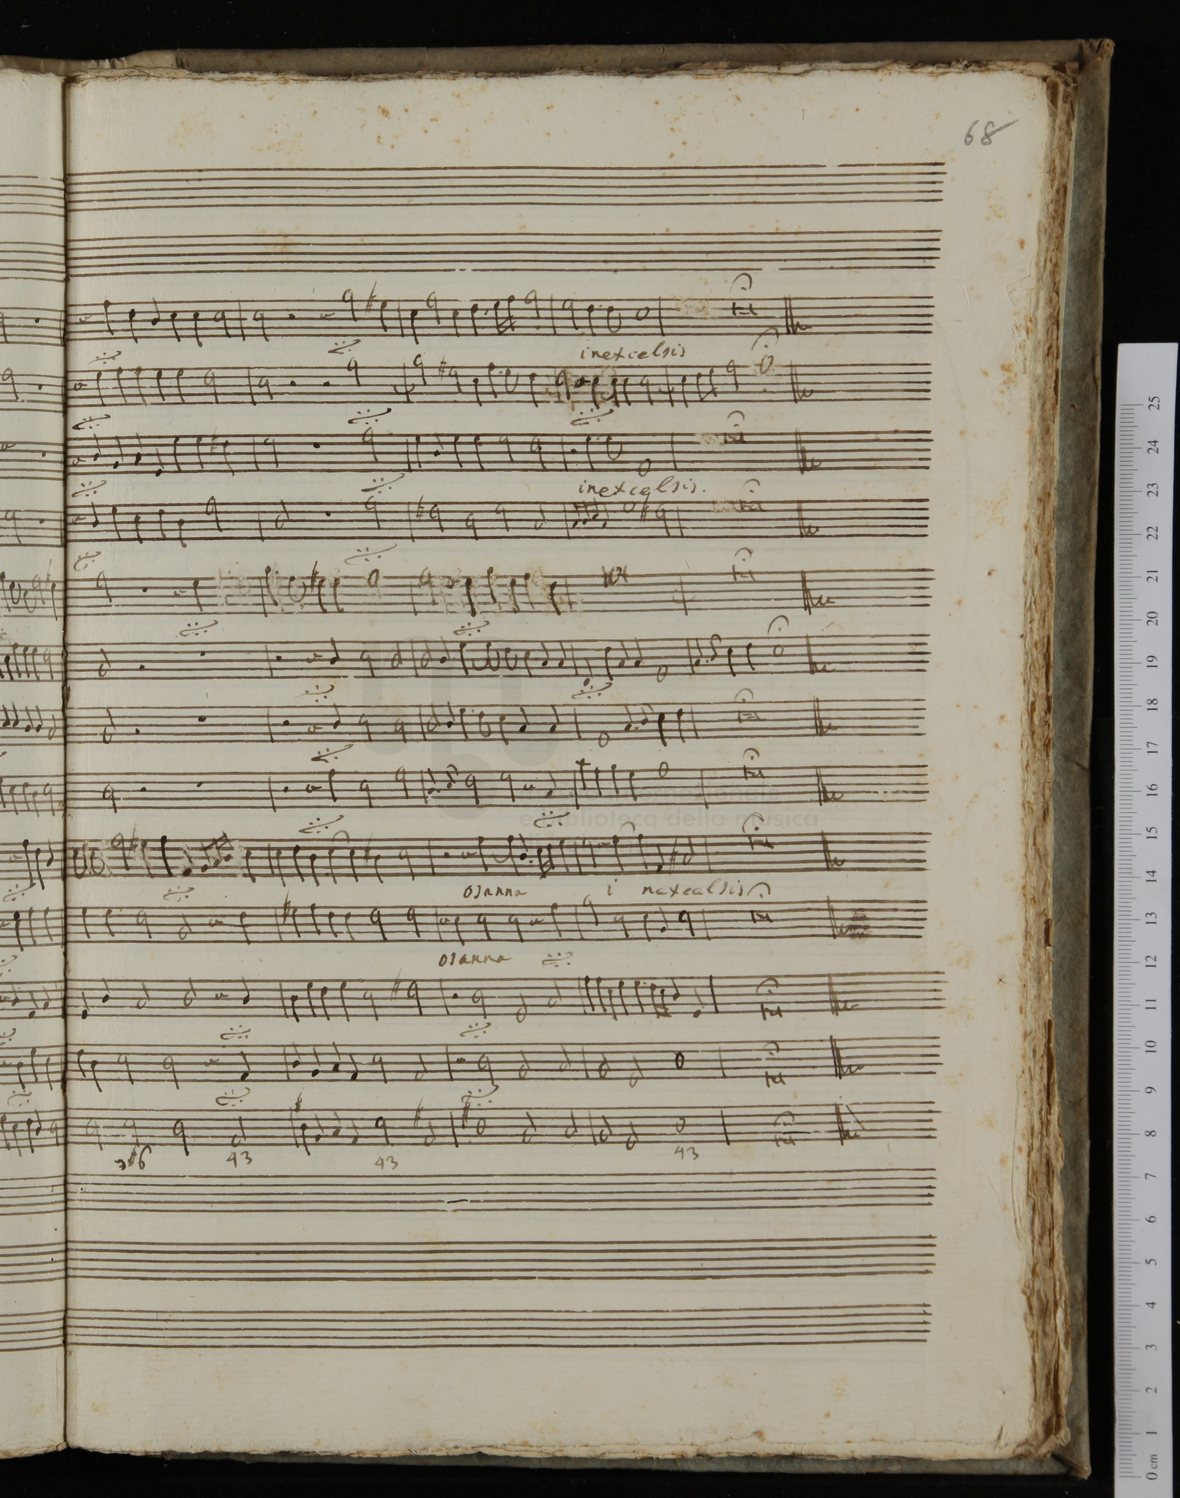 68
in excelsis
in excelsis.
e biblioteca della musica
osanna i nexcelsis
osanna
43
43
43
25
24
23
22
21
20
19
18
17
16
15
14
13
12
11
10
9
8
7
6
5
4
3
2
1
0 cm